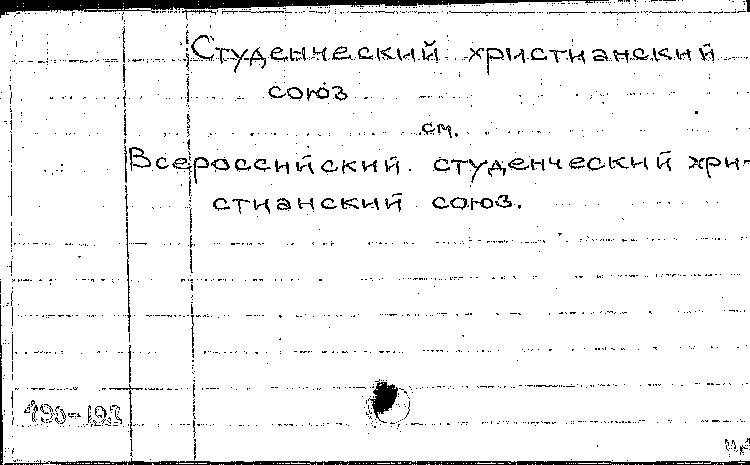 Студенческий христианский
союз
см.
Всероссийский студенческий хри-
стианский союз.